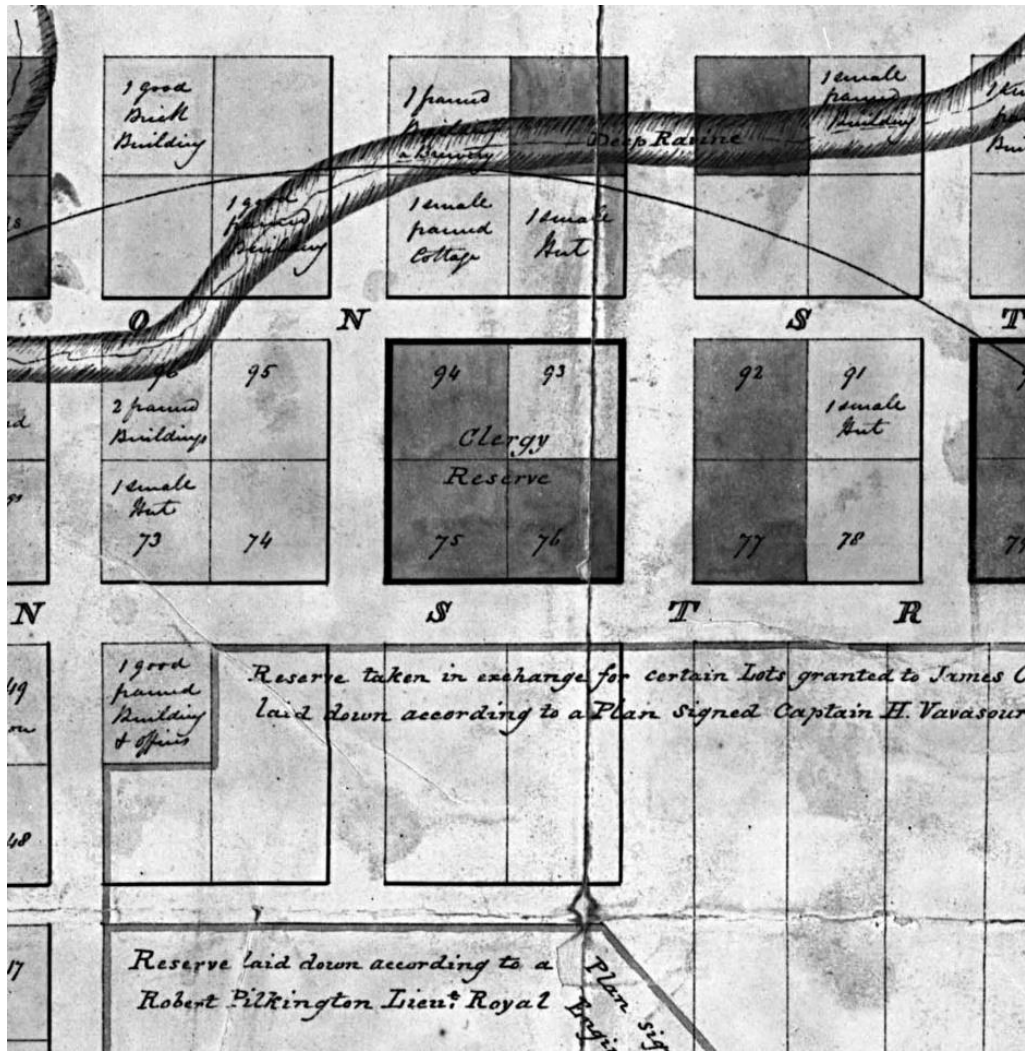 1 good
Brick
Building
1 framed
Building
a Brewery
1 small
framed
Building
Deep Ravine
1 good
framed
Building
1 small
framed
Cottage
1 small
Hut
O N S T
96 95
94 93
92 91
2 framed
Buildings
Clergy
Reserve
1 small
Hut
1 small
Hut
73 74
75 76
77 78
79
N S T R
49
1 good
framed
Building
& offices
Reserve taken in exchange for certain Lots granted to James
laid down according to a Plan signed Captain H. Vavasour
48
17
Reserve laid down according to a
Robert Pilkington Lieut. Royal
Plan sig
Engin